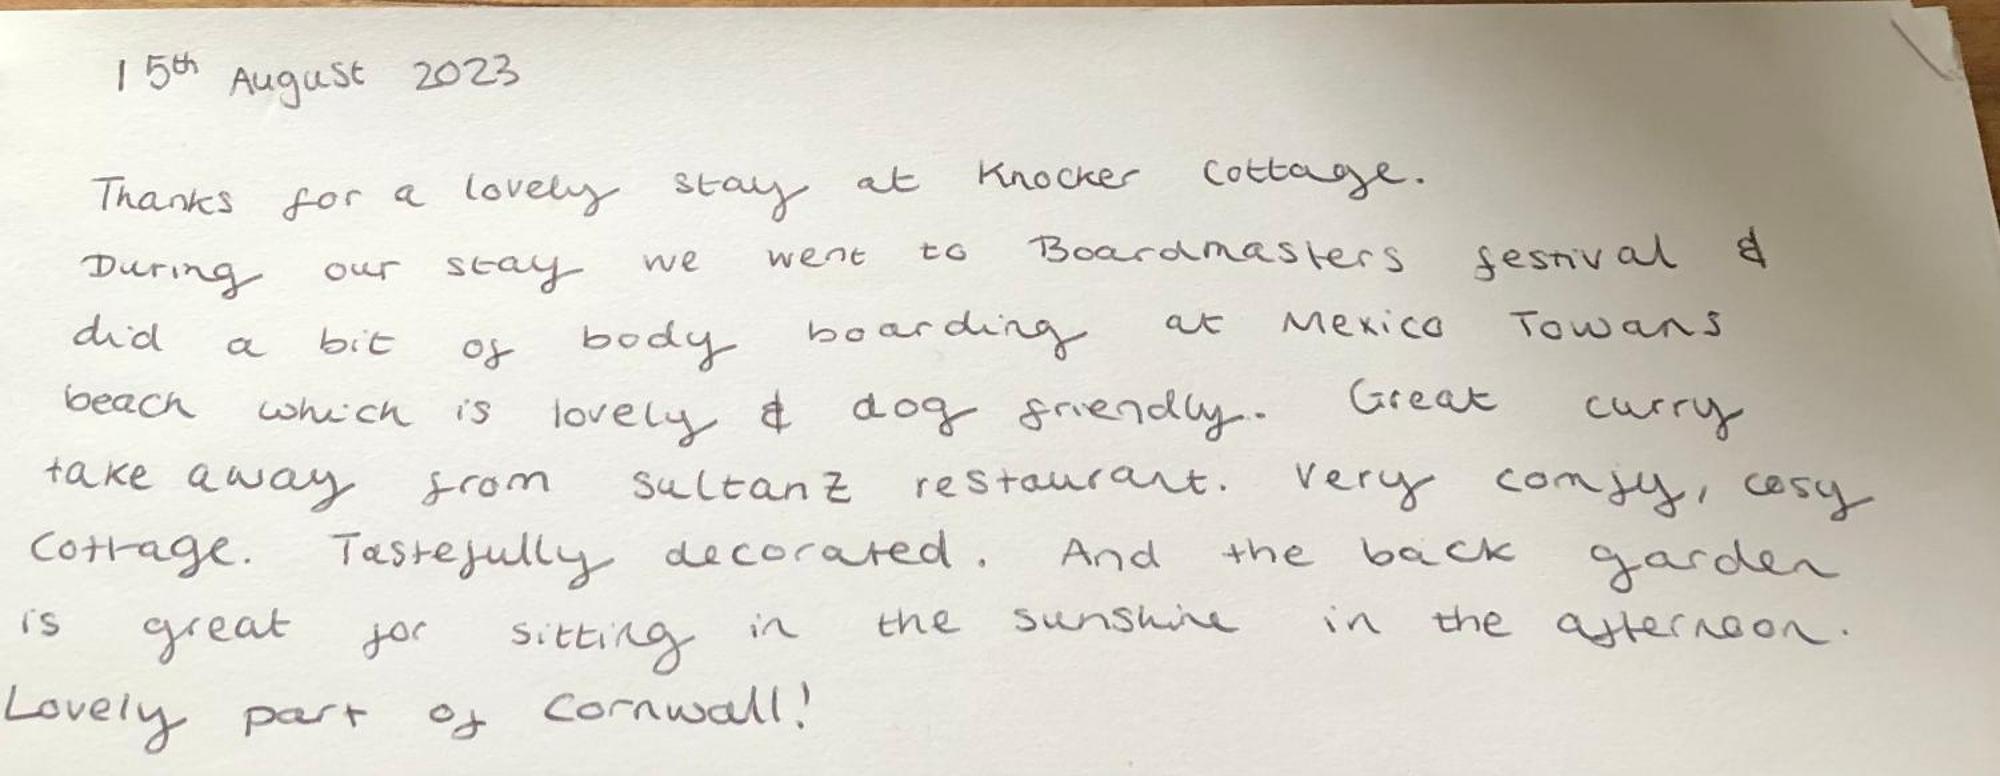 15th August 2023
Thanks for a lovely stay at Knocker Cottage.
During our stay we went to Boardmasters festival &
did a bit of body boarding at Mexico Towans
beach which is lovely & dog friendly. Great curry
take away from Sultanz restaurant. Very comfy, cosy
cottage. Tastefully decorated. And the back garden
is great for sitting in the sunshine in the afternoon.
Lovely part of Cornwall!